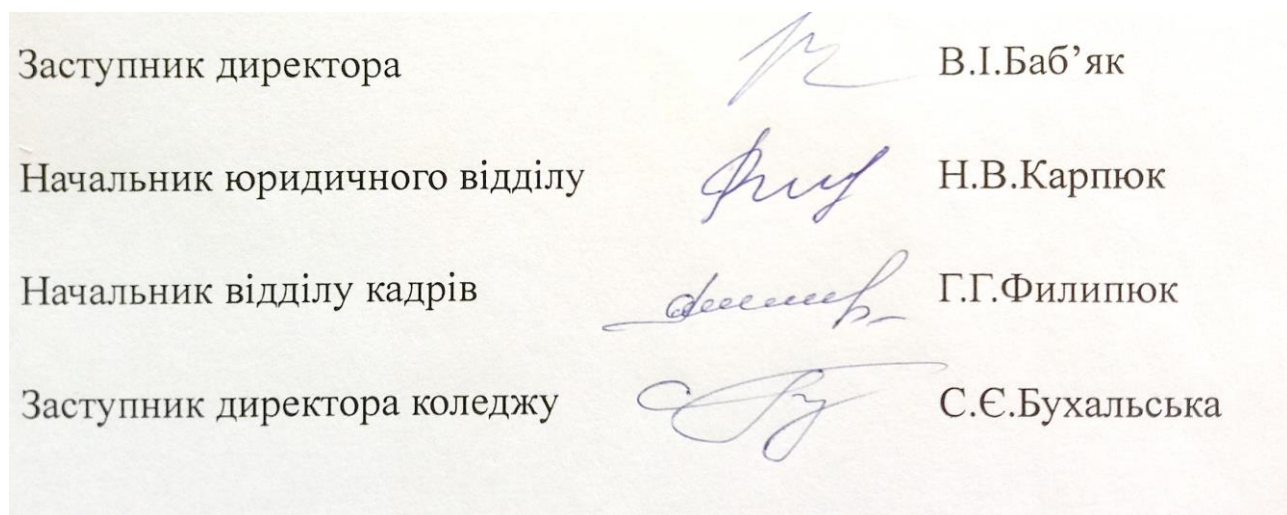 Заступник директора В.І.Баб’як
Начальник юридичного відділу Н.В.Карпюк
Начальник відділу кадрів Г.Г.Филипюк
Заступник директора коледжу С.Є.Бухальська